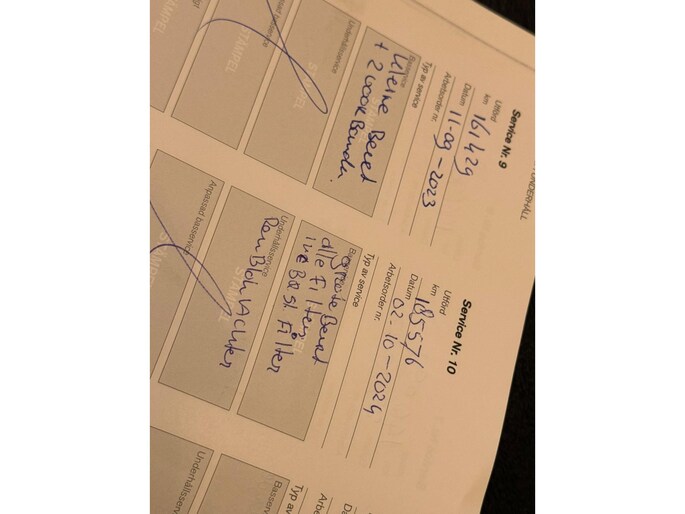 UNDERHÅLL
Service Nr. 9
Utförd
km 161429
Datum 11-09-2023
Arbetsorder nr.
Typ av service
Basservice
Kleine Beurt
+ 2
STÄMPEL
Underhållsservice
STÄMPEL
STÄMPEL
Service Nr. 10
Utförd
km 185576
Datum 02-10-2024
Arbetsorder nr.
Typ av service
grote Beurt
alle Filters
Filter
STÄMPEL
Underhållsservice
STÄMPEL
Anpassad basservice
STÄMPEL
Da
Arbe
Typ av
Basservice
Underhållsservice